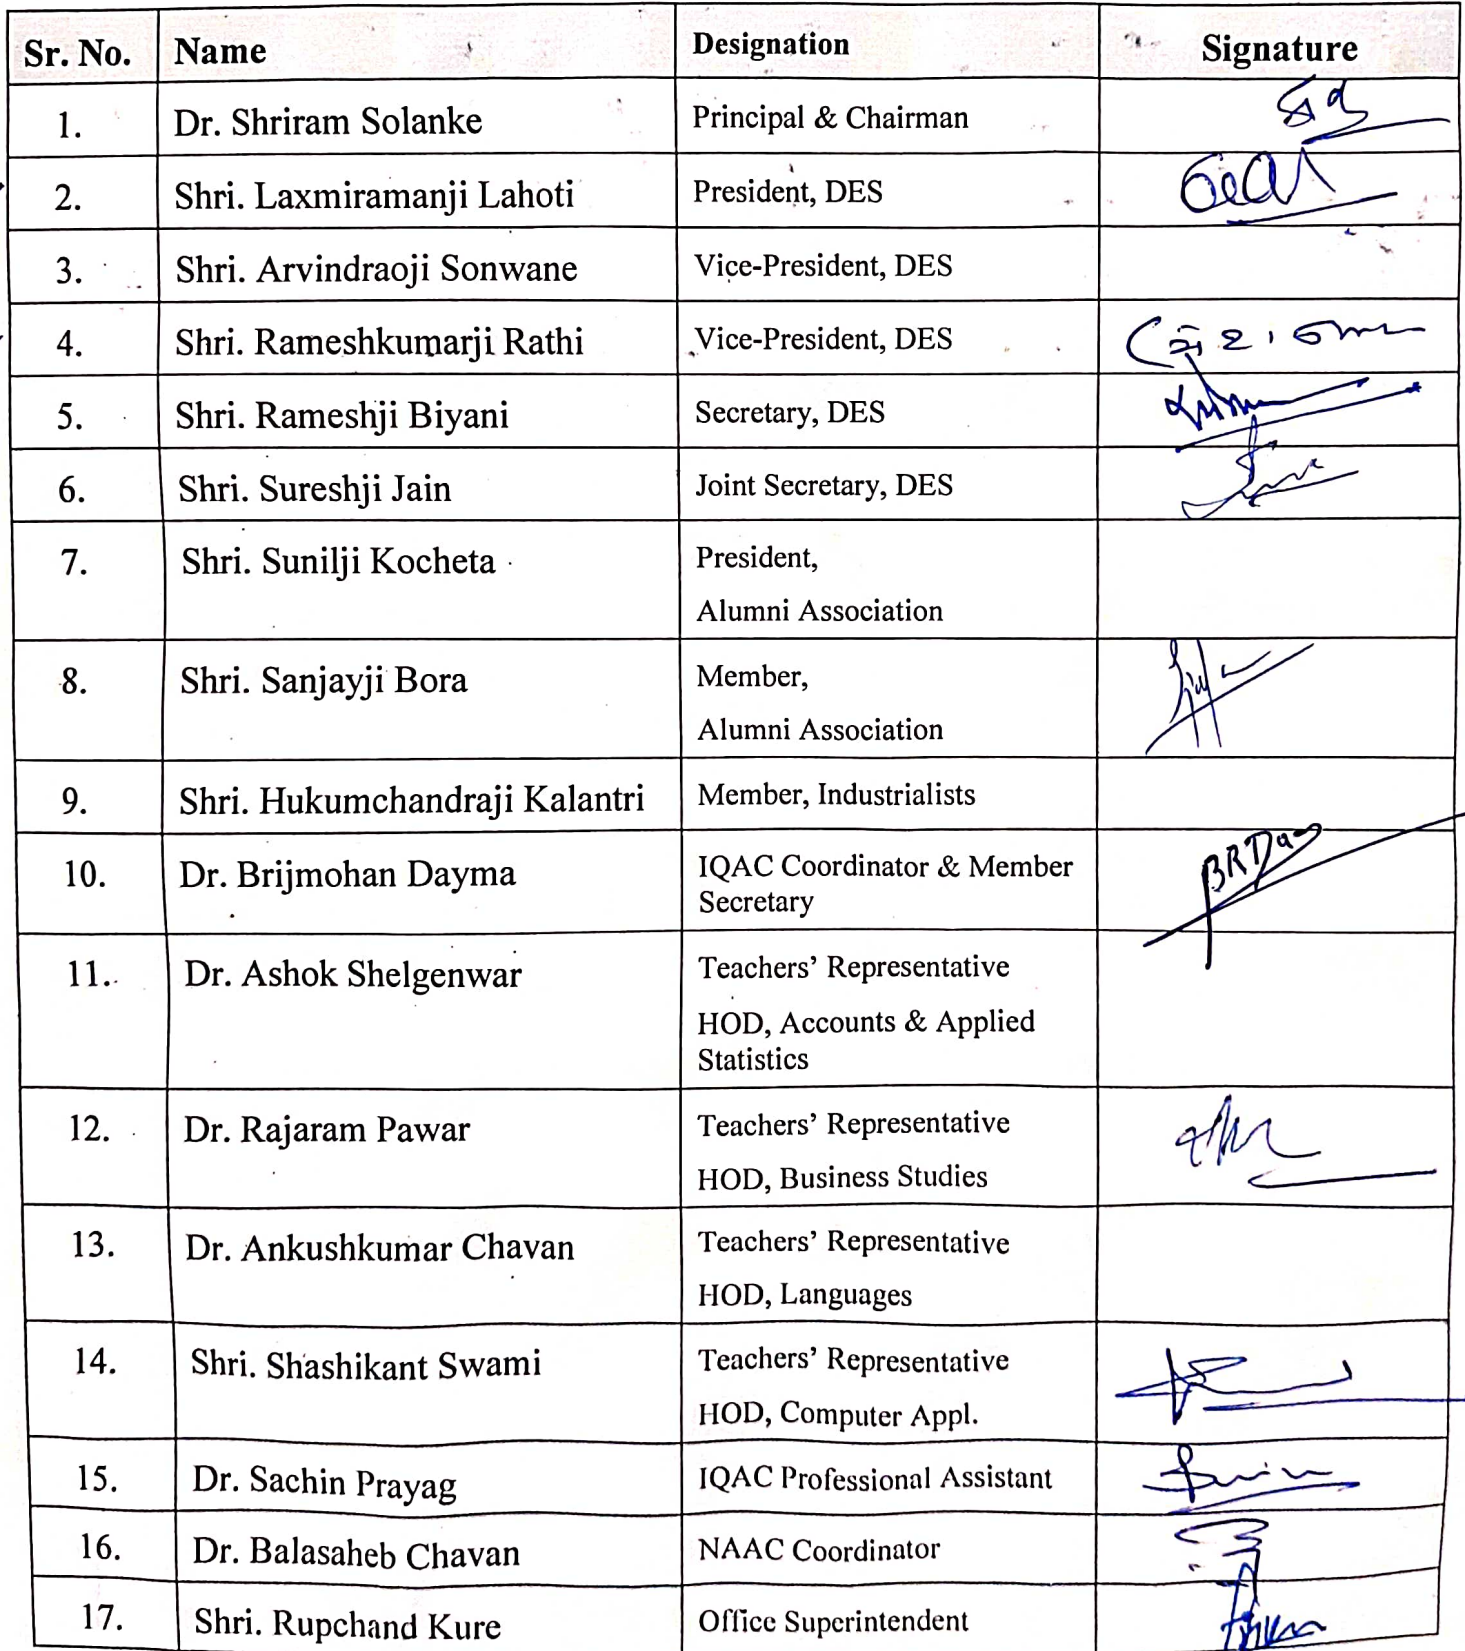 Sr. No. Name Designation Signature
1. Dr. Shriram Solanke Principal & Chairman
2. Shri. Laxmiramanji Lahoti President, DES
3. Shri. Arvindraoji Sonwane Vice-President, DES
4. Shri. Rameshkumarji Rathi Vice-President, DES
5. Shri. Rameshji Biyani Secretary, DES
6. Shri. Sureshji Jain Joint Secretary, DES
7. Shri. Sunilji Kocheta President,
Alumni Association
8. Shri. Sanjayji Bora Member,
Alumni Association
9. Shri. Hukumchandraji Kalantri Member, Industrialists
10. Dr. Brijmohan Dayma IQAC Coordinator & Member
Secretary
11. Dr. Ashok Shelgenwar Teachers' Representative
HOD, Accounts & Applied
Statistics
12. Dr. Rajaram Pawar Teachers' Representative
HOD, Business Studies
13. Dr. Ankushkumar Chavan Teachers' Representative
HOD, Languages
14. Shri. Shashikant Swami Teachers' Representative
HOD, Computer Appl.
15. Dr. Sachin Prayag IQAC Professional Assistant
16. Dr. Balasaheb Chavan NAAC Coordinator
17. Shri. Rupchand Kure Office Superintendent